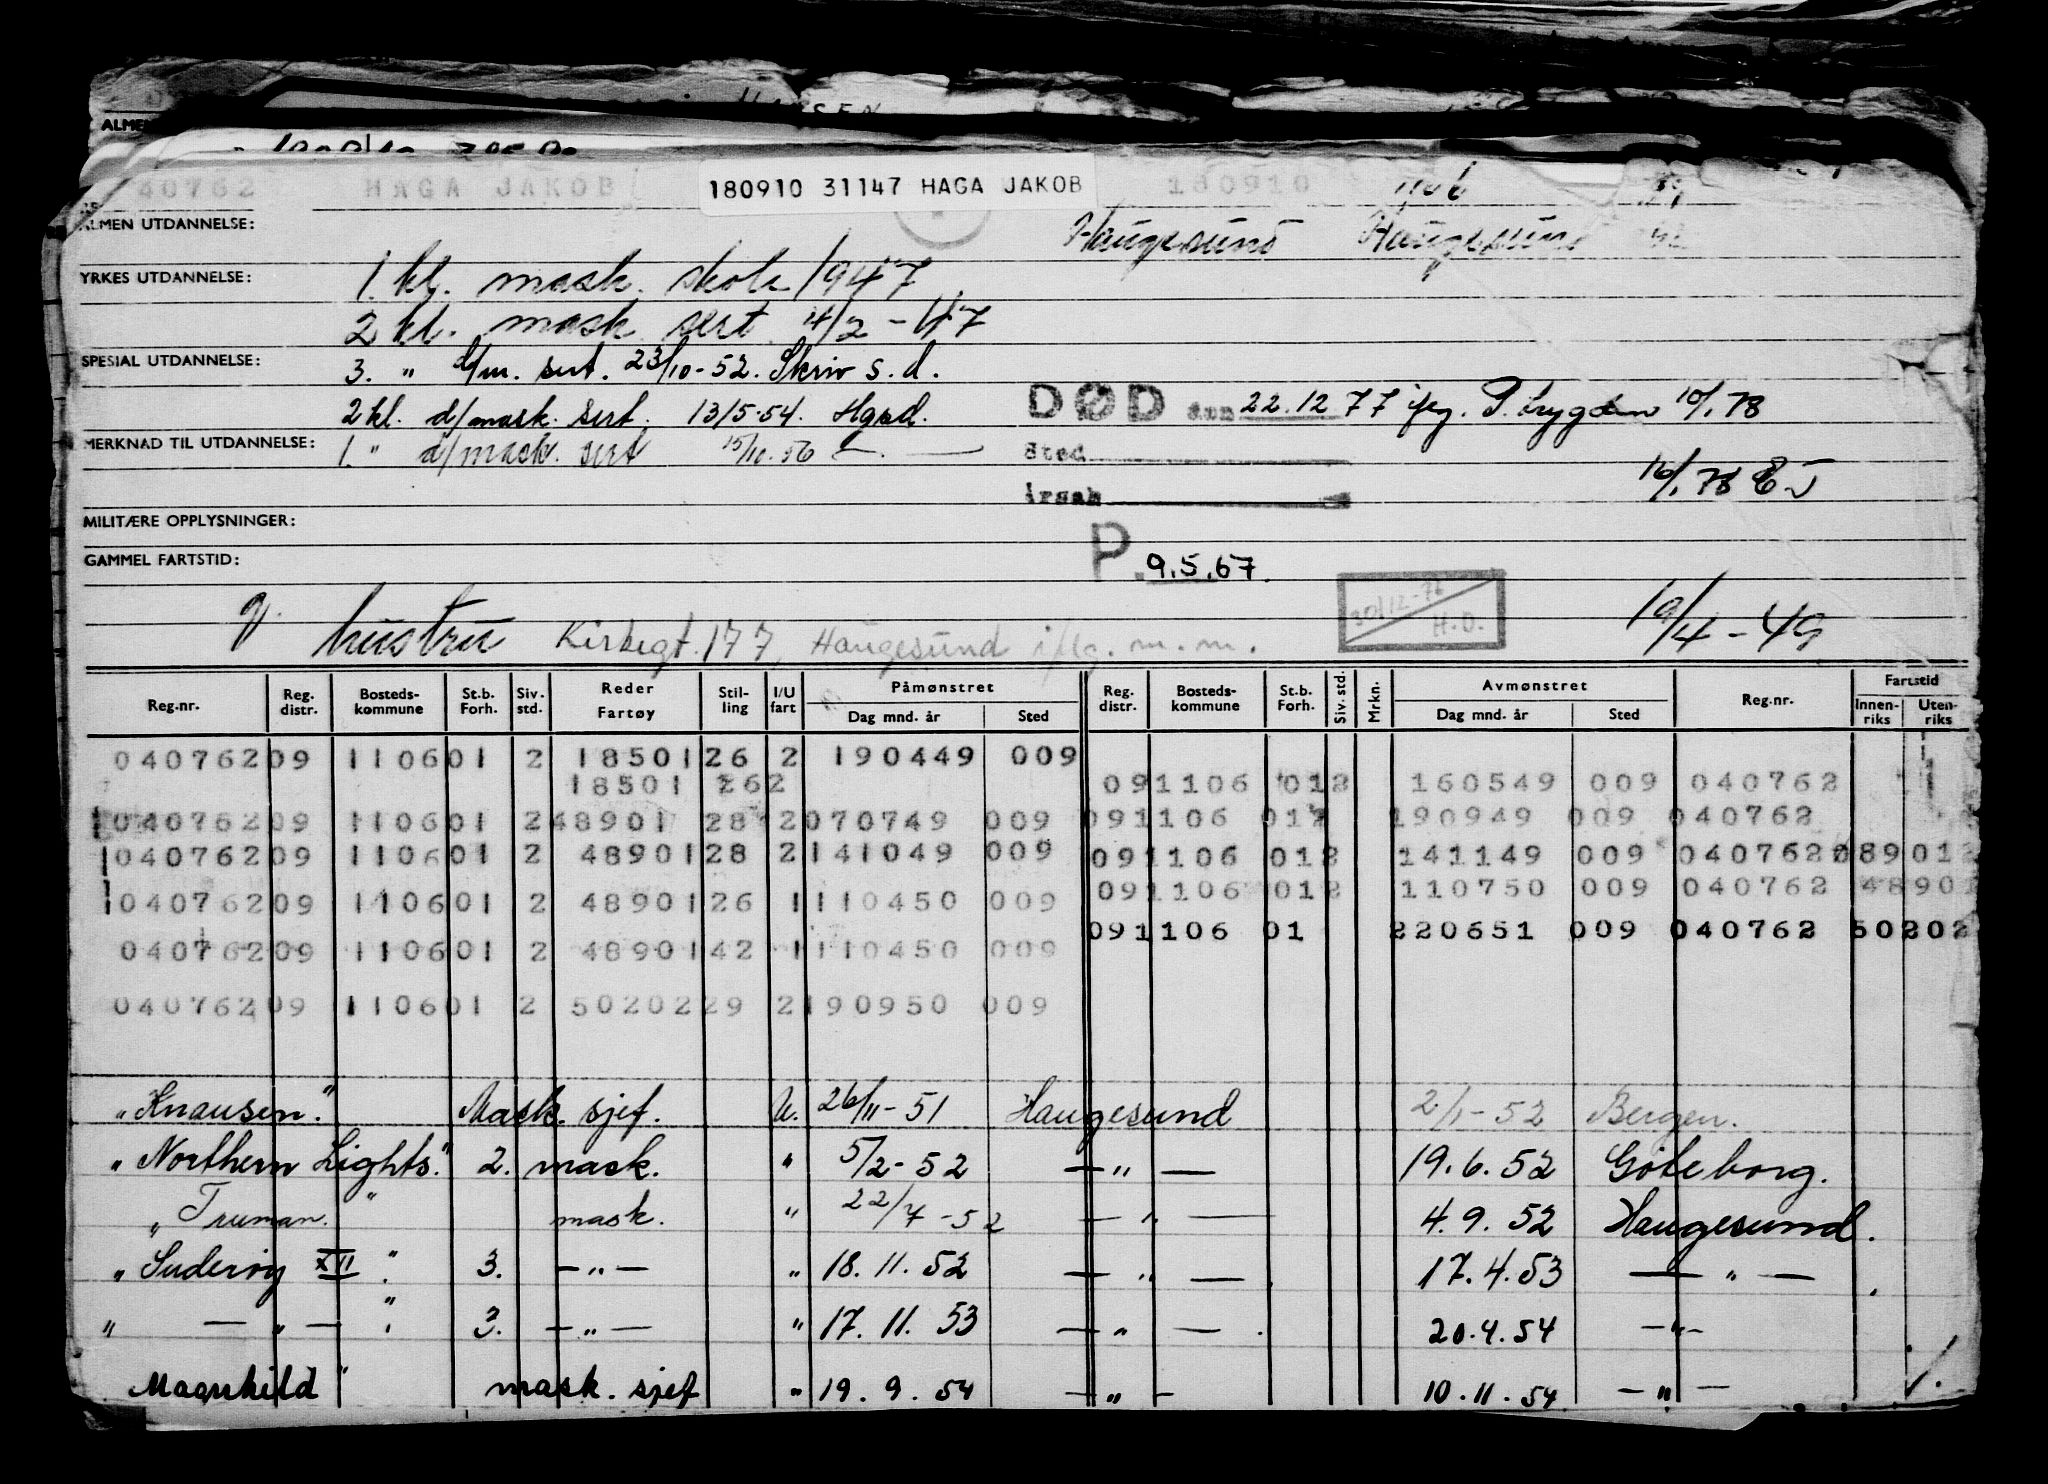 ALMEN
40762 HAGA JAKOB 180910 31147 HAGA JAKOB 180910
ALMEN UTDANNELSE: Haugesund Haugesund
YRKES UTDANNELSE: 1. kl. mask. skole 1947
2 kl. mask sert 4/2 - 47
SPESIAL UTDANNELSE: 3. " d/m. sert. 23/10-52. Skriv s.d.
2 kl. d/mask. sert. 13/5-54. Hgsd. DØD den 22.12 77 ifg. P. trygden 10/1 78
MERKNAD TIL UTDANNELSE: 1. " d/mask. sert 15/10.56 — " — Sted
årsak 16/1 78 EJ
MILITÆRE OPPLYSNINGER:
GAMMEL FARTSTID: P. 9.5.67.
30/12-76 H.O. 19/4-49
g. hustru Kirkegt. 177, Haugesund iflg. m.m.
Reg.nr. Reg. distr. Bosteds-kommune St.b. Forh. Siv. std. Reder Fartøy Stil-ling I/U fart Påmønstret Dag mnd. år Sted Reg. distr. Bosteds-kommune St.b. Forh. Siv. std. Mrkn. Avmønstret Dag mnd. år Sted Reg.nr. Fartstid Innen-riks Uten-riks
040762 09 1106 01 2 18501 26 2 190449 009
18501 26 2 09 1106 01 2 160549 009 040762
040762 09 1106 01 2 48901 28 2 070749 009 09 1106 01 2 190949 009 040762
040762 09 1106 01 2 48901 28 2 141049 009 09 1106 01 2 141149 009 040762 489012
040762 09 1106 01 2 48901 26 1 110450 009 09 1106 01 2 110750 009 040762 48901
040762 09 1106 01 2 48901 42 1 110450 009 09 1106 01 220651 009 040762 50202
040762 09 1106 01 2 50202 29 2 190950 009
"Knausen." Mask. sjef. U. 26/11-51 Haugesund 2/1-52 Bergen.
"Northern Lights." 2. mask. " 5/2-52 — " — 19.6.52 Göteborg.
"Truman." mask. " 22/7-52 — " — 4.9.52 Haugesund.
"Suderøy XII". 3. — " — " 18.11.52 — " — . 17.4.53 — " — .
" — " — ". 3. — " — " 17.11.53 — " — . 20.4.54 — " —
Magnhild" mask. sjef " 19.9.54 — " — 10.11.54 — " —